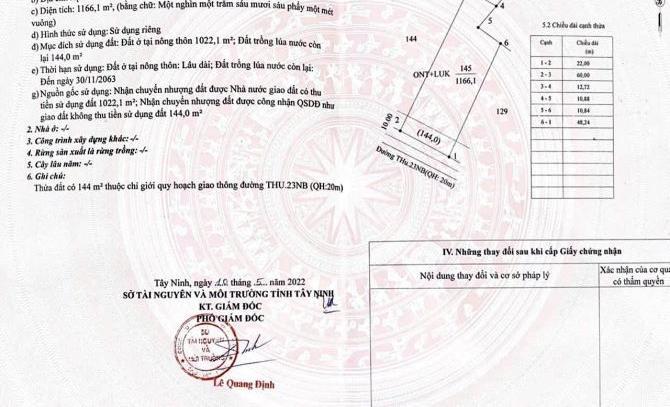 c) Diện tích: 1166,1 m², (bằng chữ: Một nghìn một trăm sáu mươi sáu phẩy một mét
vuông)
d) Hình thức sử dụng: Sử dụng riêng
đ) Mục đích sử dụng đất: Đất ở tại nông thôn 1022,1 m²; Đất trồng lúa nước còn
lại 144,0 m²
e) Thời hạn sử dụng: Đất ở tại nông thôn: Lâu dài; Đất trồng lúa nước còn lại:
Đến ngày 30/11/2063
g) Nguồn gốc sử dụng: Nhận chuyển nhượng đất được Nhà nước giao đất có thu
tiền sử dụng đất 1022,1 m²; Nhận chuyển nhượng đất được công nhận QSDĐ như
giao đất không thu tiền sử dụng đất 144,0 m²
2. Nhà ở: -/-
3. Công trình xây dựng khác: -/-
4. Rừng sản xuất là rừng trồng: -/-
5. Cây lâu năm: -/-
6. Ghi chú:
Thửa đất có 144 m² thuộc chỉ giới quy hoạch giao thông đường THU.23NB (QH:20m)
Tây Ninh, ngày 10 tháng 5 năm 2022
SỞ TÀI NGUYÊN VÀ MÔI TRƯỜNG TỈNH TÂY NINH
KT. GIÁM ĐỐC
PHÓ GIÁM ĐỐC
SỞ
TÀI NGUYÊN
VÀ
MÔI TRƯỜNG
Lê Quang Định
4
5
6
144
ONT+LUK
145
1166,1
129
10.00
2
(144,0)
1
Đường THu.23NB(QH: 20m)
5.2 Chiều dài cạnh thửa
Cạnh
Chiều dài
(m)
1-2 22,00
2-3 60,00
3-4 12,72
4-5 10,88
5-6 10,84
6-1 48,24
IV. Những thay đổi sau khi cấp Giấy chứng nhận
Nội dung thay đổi và cơ sở pháp lý
Xác nhận của cơ qu
có thẩm quyền